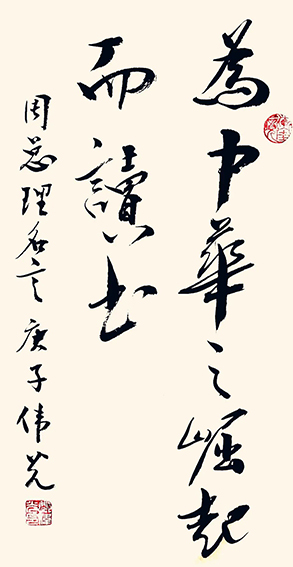 為中華之崛起
而讀书
周总理名言 庚子伟光